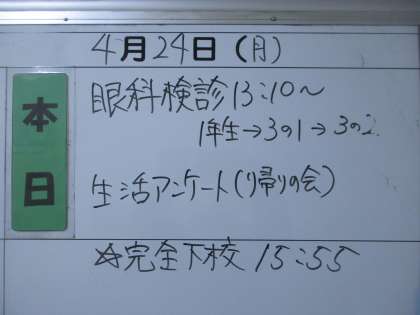 4月24日(月)
本日
眼科検診13:10〜
1年生→3の1→3の2
生活アンケート(り帰りの会)
☆完全下校 15:55